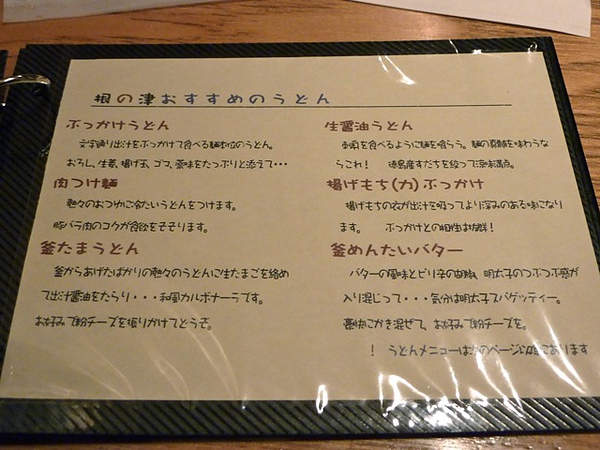 根の津おすすめのうどん
ぶっかけうどん
文字通り出汁をぶっかけて食べる麺本位のうどん。
おろし、生姜、揚げ玉、ゴマ、薬味をたっぷりと添えて・・・
肉つけ麺
熱々のおつゆに冷たいうどんをつけます。
豚バラ肉のコクが食欲をそそります。
釜たまうどん
釜からあげたばかりの熱々のうどんに生たまごを絡め
て出汁醤油をたらり・・・和風カルボナーラです。
お好みで粉チーズを振りかけてどうぞ。
生醤油うどん
刺身を食べるように麺を喰らう。麺の真髄を味わうな
らこれ！　徳島産すだちを絞って涼味満点。
揚げもち(力)ぶっかけ
揚げもちの衣が出汁を吸ってより深みのある味になり
ます。　ぶっかけとの相性は抜群！
釜めんたいバター
バターの風味とピリ辛の胡椒、明太子のつぶつぶ感が
入り混じって・・・気分は明太子スパゲッティー。
豪快にかき混ぜて、お好みで粉チーズを。
！　うどんメニューは次のページに もあります